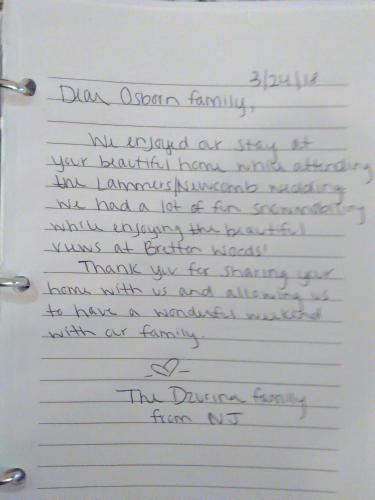 3/24/18
Dear Osborn family,
We enjoyed our stay at
your beautiful home while attending
the Lammers/Newcomb wedding
We had a lot of fun snowmobiling
while enjoying the beautiful
views at Bretton Woods!
Thank you for sharing your
home with us and allowing us
to have a wonderful weekend
with our family.
The Dzurina family
from NJ